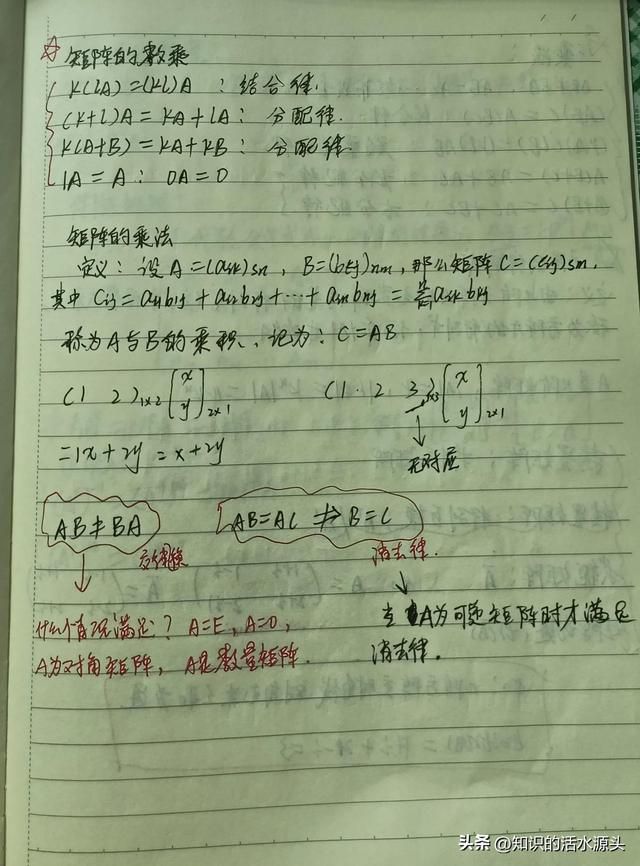 ☆ 矩阵的数乘
k(lA)=(kl)A : 结合律.
(k+l)A=kA+lA : 分配律.
k(A+B)=kA+kB : 分配律.
1A=A : 0A=0
矩阵的乘法
定义: 设A=(aik)sn, B=(bkj)nm, 那么矩阵C=(cij)sm,
其中 cij=ai1b1j+ai2b2j+⋯+ainbnj=
称为A与B的乘积, 记为: C=AB
(1 2)1×2 [x y]2×1 (1 2 3)1×3 [x y]2×1
=1x+2y=x+2y 无对应
AB≠BA AB=AC ⇏ B=C
交换律 消去律.
什么情况满足? A=E, A=0,
A为对角矩阵, A是数量矩阵.
当A为可逆矩阵时才满足
消去律.
头条 @知识的活水源头